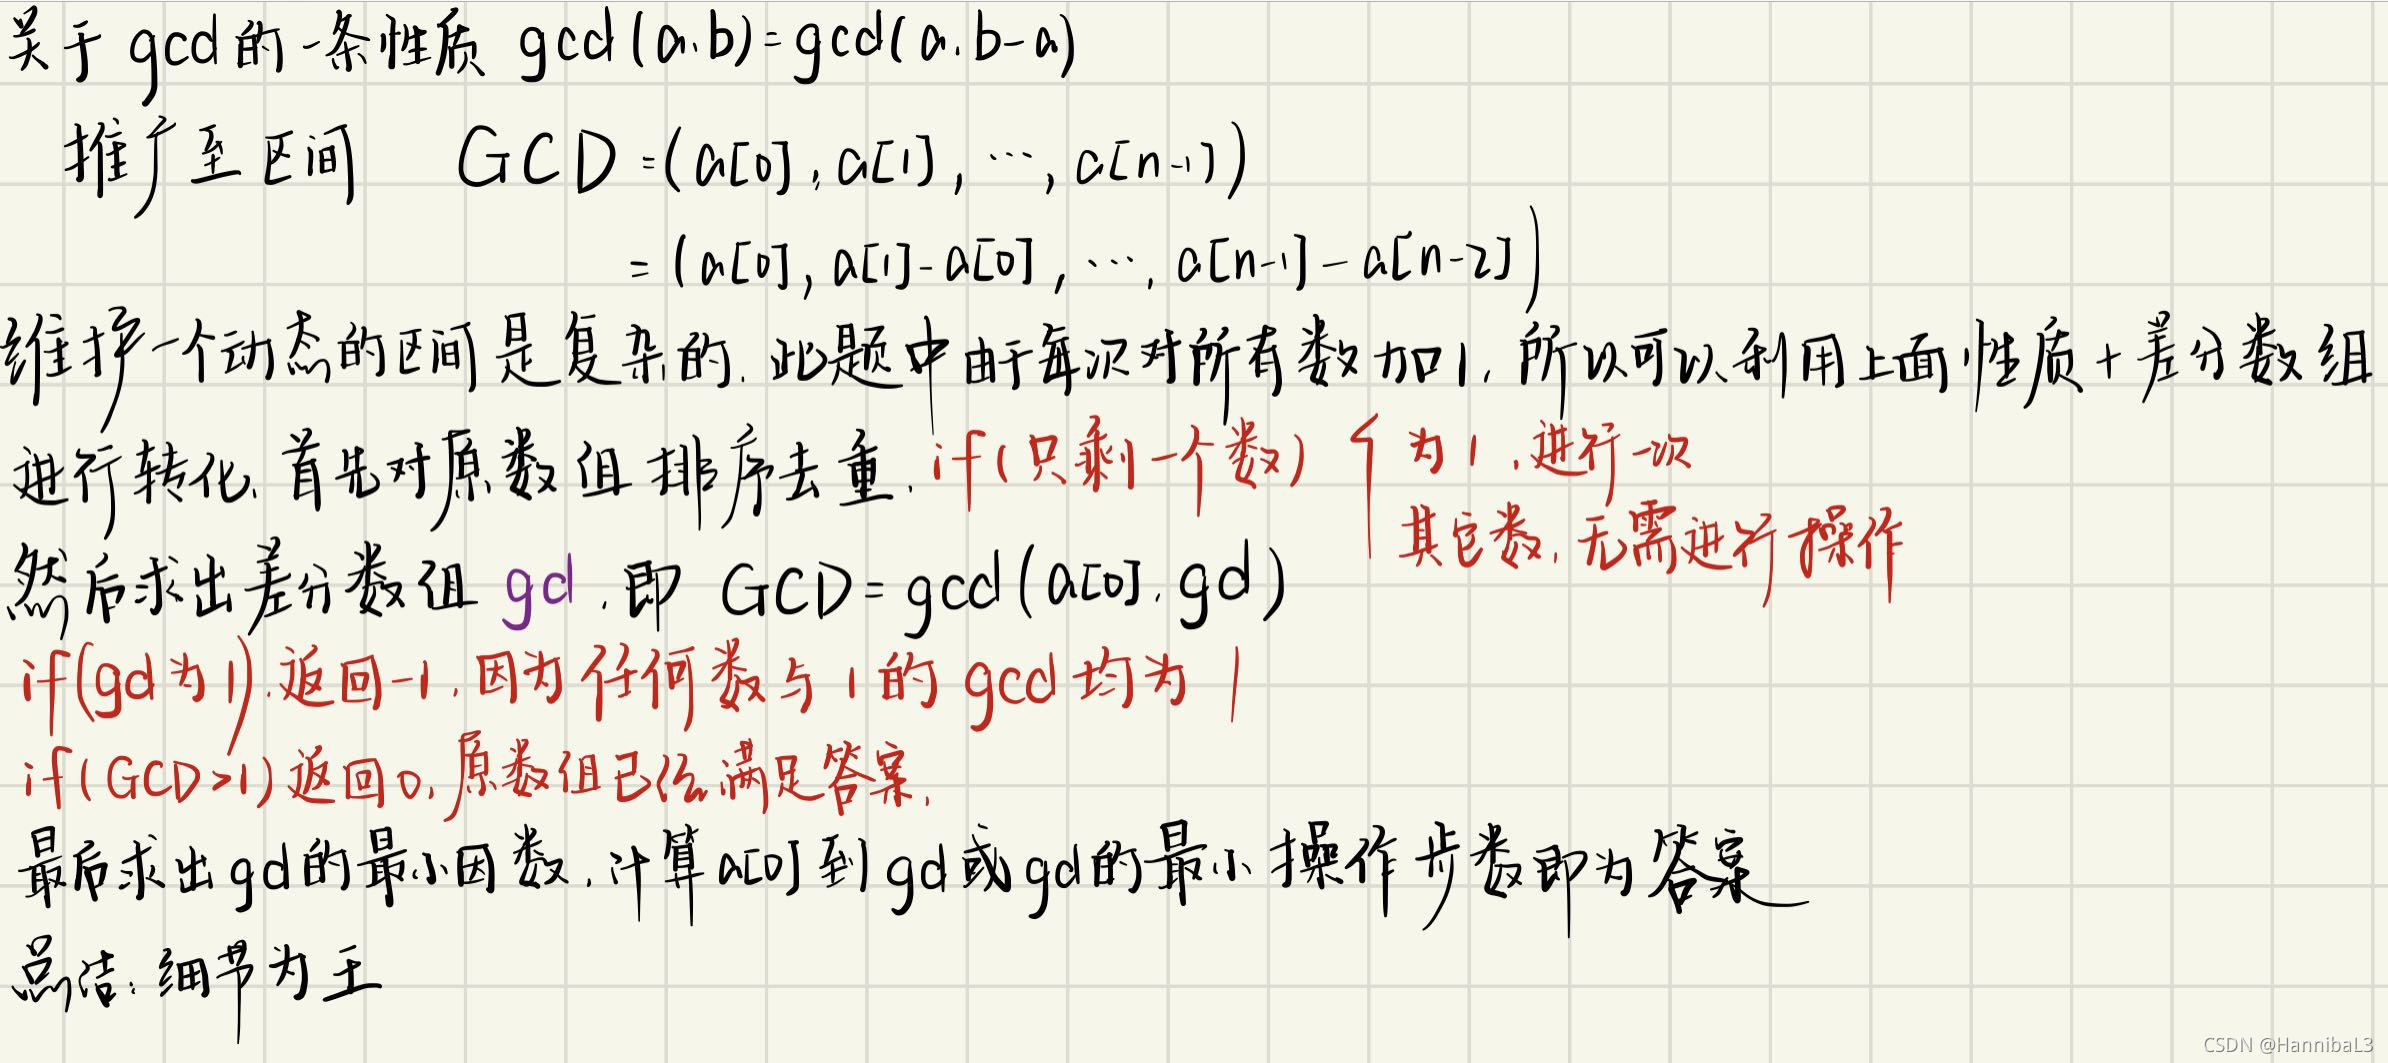 关于 gcd 的一条性质 gcd(a.b)=gcd(a.b-a)
推广至区间 GCD =(a[0],a[1],…,a[n-1])
=(a[0],a[1]-a[0],…,a[n-1]-a[n-2])
维护一个动态的区间是复杂的.此题中由于每次对所有数加1,所以可以利用上面性质+差分数组
进行转化.首先对原数组排序去重.if(只剩一个数){为1,进行一次
其它数,无需进行操作
然后求出差分数组 gd,即 GCD=gcd(a[0].gd)
if(gd为1).返回-1.因为任何数与1的gcd均为1
if(GCD>1)返回0,原数组已经满足答案.
最后求出gd的最小因数,计算a[0]到gd或gd的最小操作步数即为答案
总结:细节为王
CSDN @HannibaL3